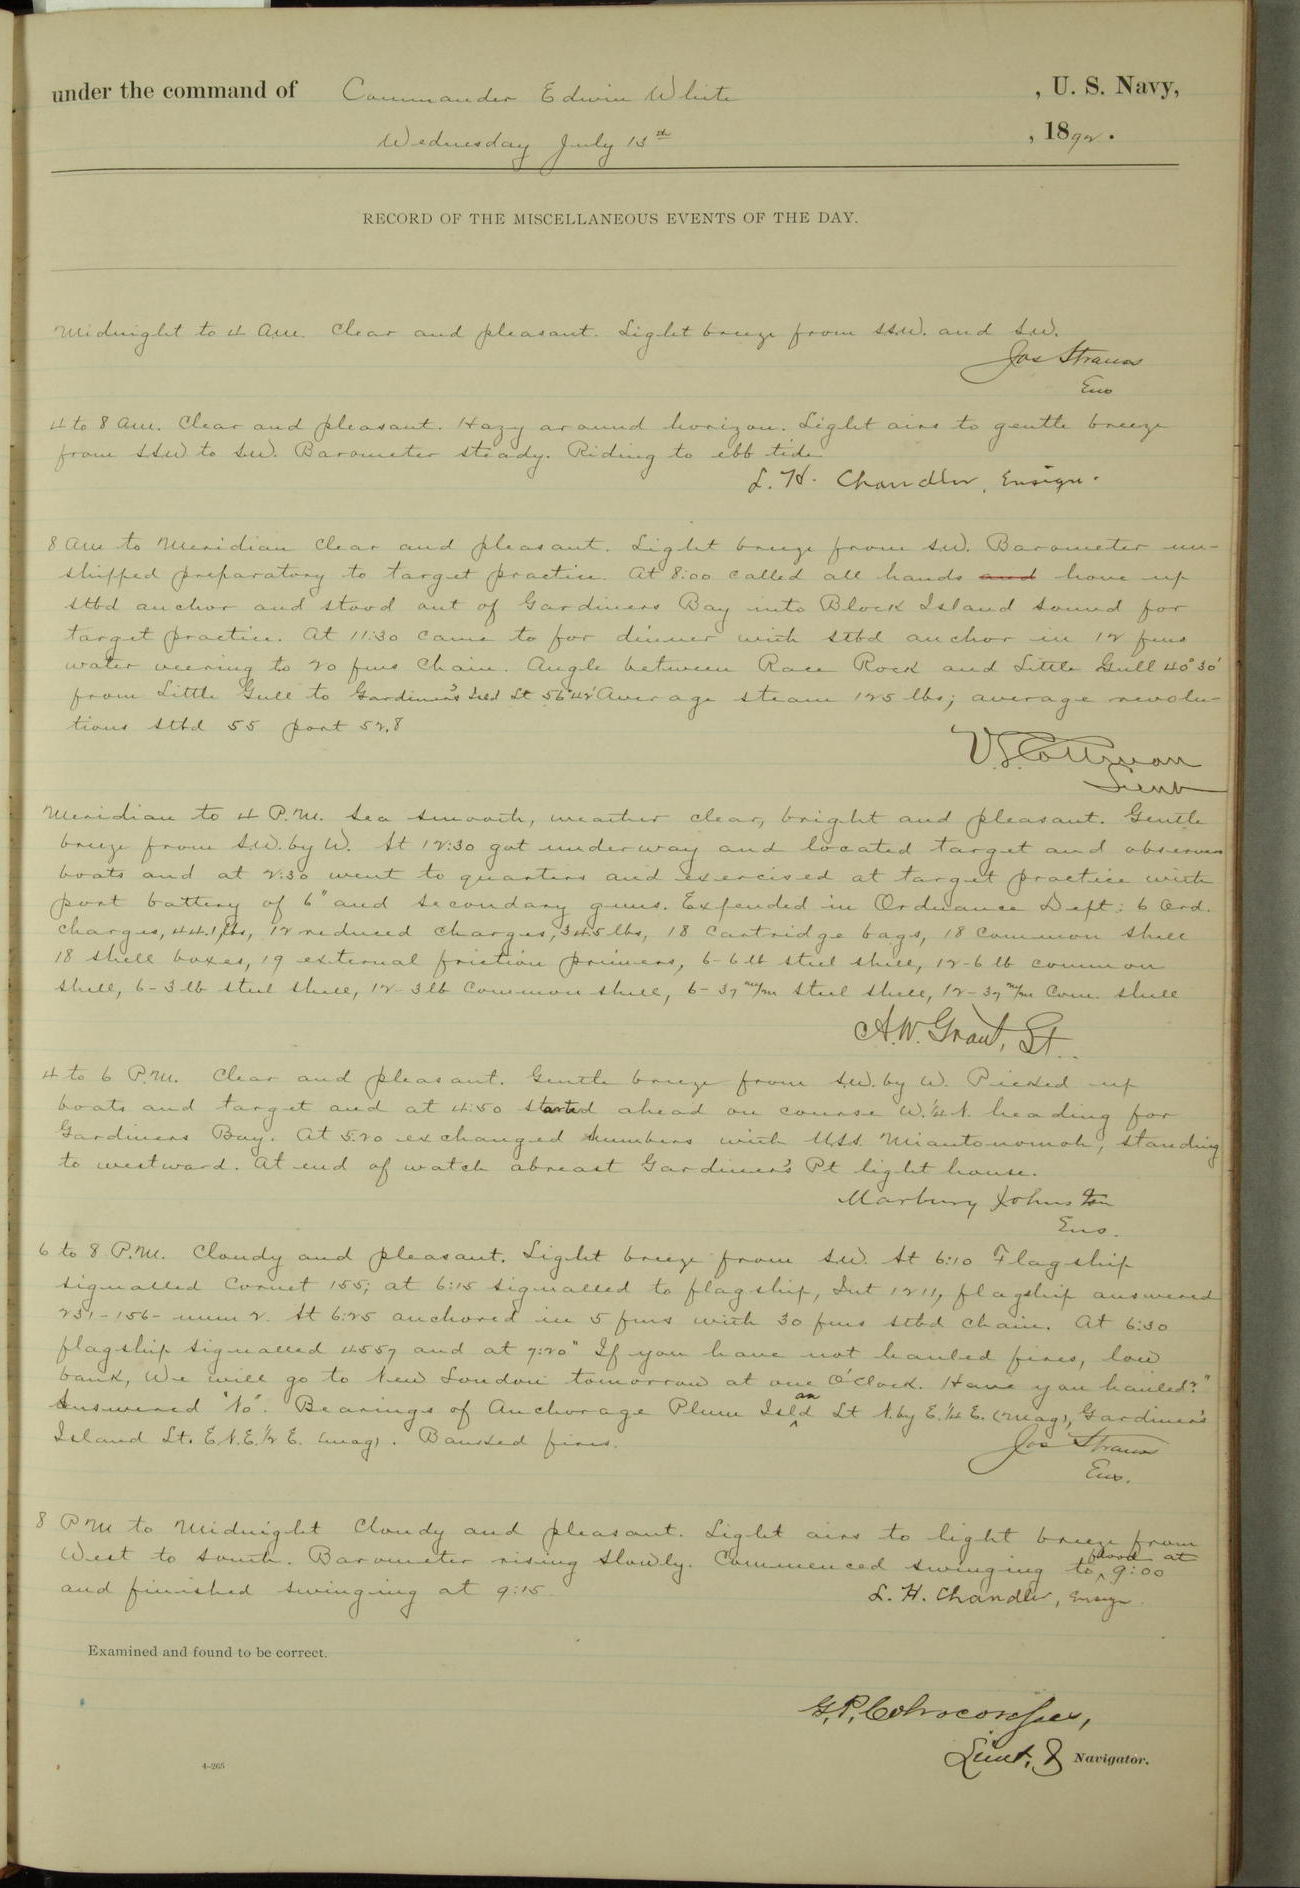 under the command of Commander Edwin White , U. S. Navy,
Wednesday July 13th , 1892.
RECORD OF THE MISCELLANEOUS EVENTS OF THE DAY.
Midnight to 4 Am. Clear and pleasant. Light breeze from SSW. and SW.
Jos Strauss
Ens
4 to 8 am. Clear and pleasant. Hazy around horizon. Light airs to gentle breeze
from SSW to SW. Barometer steady. Riding to ebb tide
L. H. Chandler, Ensign.
8 Am to Meridian Clear and pleasant. Light breeze from SW. Barometer un-
shipped preparatory to target practice. At 8:00 called all hands and hove up
stbd anchor and stood out of Gardiners Bay into Block Island Sound for
target practice. At 11:30 came to for dinner with stbd anchor in 12 fms
water veering to 20 fms chain. Angle between Race Rock and Little Gull 40° 30'
from Little Gull to Gardiner's Isld Lt 56° 42' Average steam 125 lbs; average revolu-
tions stbd 55 port 52.8
V. S. Cottman
Lieut
Meridian to 4 P.M. Sea smooth, weather clear, bright and pleasant. Gentle
breeze from SW. by W. At 12:30 got underway and located target and observer
boats and at 2:30 went to quarters and exercised at target practice with
port battery of 6" and secondary guns. Expended in Ordnance Dept: 6 Ord.
charges, 441 lbs, 12 reduced charges, 345 lbs, 18 cartridge bags, 18 common shell
18 shell boxes, 19 external friction primers, 6-6 lb steel shell, 12-6 lb common
shell, 6-3 lb steel shell, 12-3 lb common shell, 6-37 m/m steel shell, 12-37 m/m Com. shell
A. W. Grant, Lt.
4 to 6 P.M. Clear and pleasant. Gentle breeze from SW. by W. Picked up
boats and target and at 4:50 started ahead on course W.¼N. heading for
Gardiners Bay. At 5:20 exchanged numbers with USS. Miantonomoh, standing
to westward. At end of watch abreast Gardiner's Pt light house.
Marbury Johnston
Ens.
6 to 8 P.M. Cloudy and pleasant. Light breeze from SW. At 6:10 Flagship
signalled Cornet 155; at 6:15 signalled to flagship, Int 1211, flagship answered
231-156- num 2. At 6:25 anchored in 5 fms with 30 fms stbd chain. At 6:30
flagship signalled 4557 and at 7:20 "If you have not hauled fires, low
bank, We will go to New London tomorrow at one O'Clock. Have you hauled?"
Answered "No". Bearings of Anchorage Plum Island Lt N. by E.¼ E. (mag), Gardiner's
Island Lt. E N.E.½ E. (mag). Banked fires.
Jos Strauss
Ens.
8 P M to Midnight Cloudy and pleasant. Light airs to light breeze from
West to South. Barometer rising slowly. Commenced swinging to flood at 9:00
and finished swinging at 9:15
L. H. Chandler, Ensign
Examined and found to be correct.
G. P. Colvocoresses,
Lieut. & Navigator.
4-265